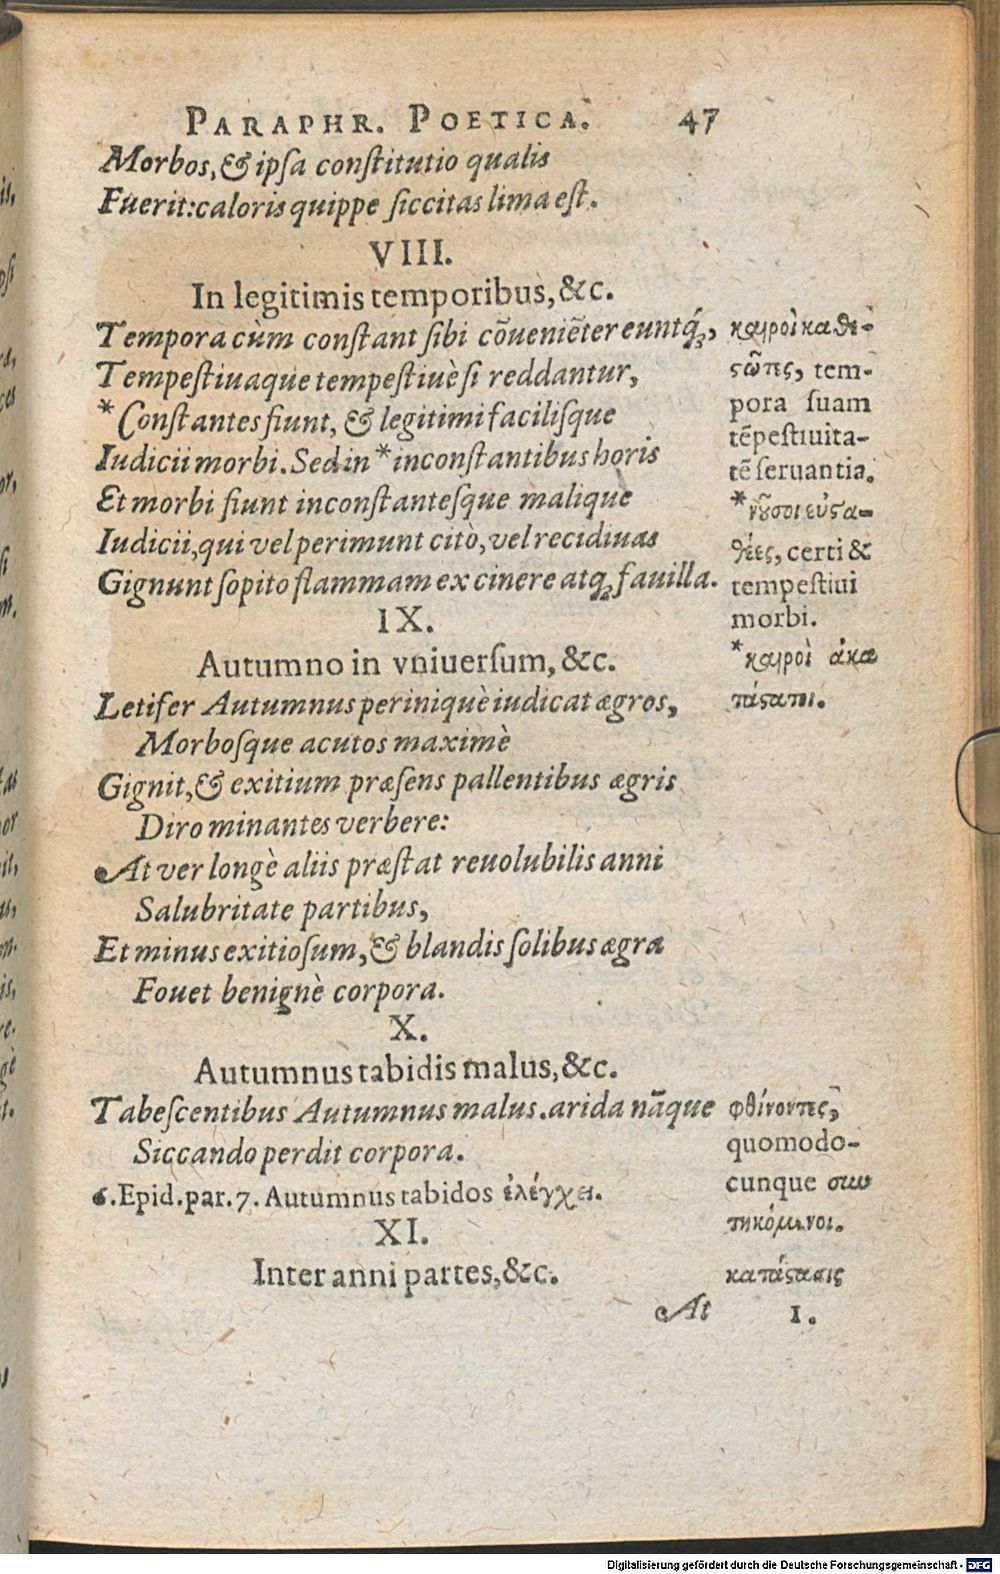 PARAPHR. POETICA. 47
Morbos, & ipſa conſtitutio qualis
Fuerit: caloris quippe ſiccitas lima eſt.
VIII.
In legitimis temporibus, &c.
Tempora cùm conſtant ſibi cõueniẽter euntq́;,
Tempeſtiuaque tempeſtiuè ſi reddantur,
* Conſtantes fiunt, & legitimi faciliſque
Iudicii morbi. Sed in * inconſtantibus horis
Et morbi fiunt inconſtanteſque malique
Iudicii, qui vel perimunt citò, vel recidiuas
Gignunt ſopito flammam ex cinere atq; fauilla.
καιροὶ καθε-
ϛῶτες, tem-
pora ſuam
tẽpeſtiuita-
tẽ ſeruantia.
* νοῦσοι εὐϛα-
θέες, certi &
tempeſtiui
morbi.
* καιροὶ ἀκα
τάϛατοι.
IX.
Autumno in vniuerſum, &c.
Letifer Autumnus periniquè iudicat ægros,
Morboſque acutos maximè
Gignit, & exitium præſens pallentibus ægris
Diro minantes verbere:
At ver longè aliis præſtat reuolubilis anni
Salubritate partibus,
Et minus exitioſum, & blandis ſolibus ægra
Fouet benignè corpora.
X.
Autumnus tabidis malus, &c.
Tabeſcentibus Autumnus malus. arida nãque
Siccando perdit corpora.
6. Epid. par. 7. Autumnus tabidos ἐλέγχει.
φθίνοντες,
quomodo-
cunque συν
τηκόμενοι.
XI.
Inter anni partes, &c.
κατάϛασις
At 1.
Digitalisierung gefördert durch die Deutsche Forschungsgemeinschaft - DFG